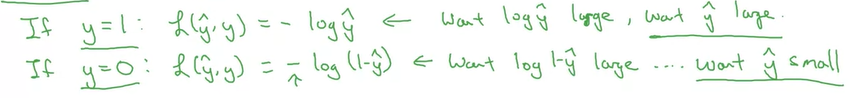 If y=1: ℒ(ŷ,y) = - log ŷ ← Want log ŷ large, want ŷ large.
If y=0: ℒ(ŷ,y) = - log (1-ŷ) ← Want log 1-ŷ large .... want ŷ small